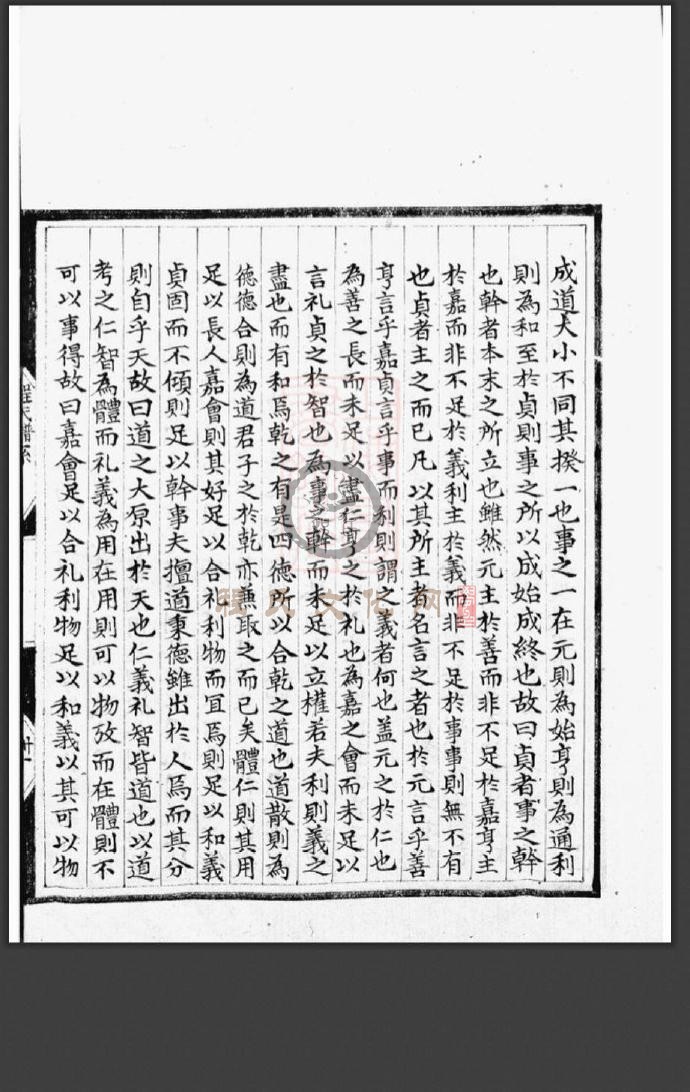 成道大小不同其揆一也事之一在元則為始亨則為通利
則為和至於貞則事之所以成始成終也故曰貞者事之幹
也幹者本末之所立也雖然元主於善而非不足於嘉亨主
於嘉而非不足於義利主於義而非不足於事事則無不有
也貞者主之而已凡以其所主者名言之者也於元言乎善
亨言乎嘉貞言乎事而利則謂之義者何也盖元之於仁也
為善之長而未足以盡仁亨之於礼也為嘉之會而未足以
言礼貞之於智也為事之幹而未足以立權若夫利則義之
盡也而有和焉乾之有是四德所以合乾之道也道散則為
德德合則為道君子之於乾亦兼取之而已矣體仁則其用
足以長人嘉會則其好足以合礼利物而宜焉則足以和義
貞固而不傾則足以幹事夫擅道東德雖出於人焉而其分
則自乎天故曰道之大原出於天也仁義礼智皆道也以道
考之仁智為體而礼義為用在用則可以物攷而在體則不
可以事得故曰嘉會足以合礼利物足以和義以其可以物
程氏譜系
廿一
程氏文化网